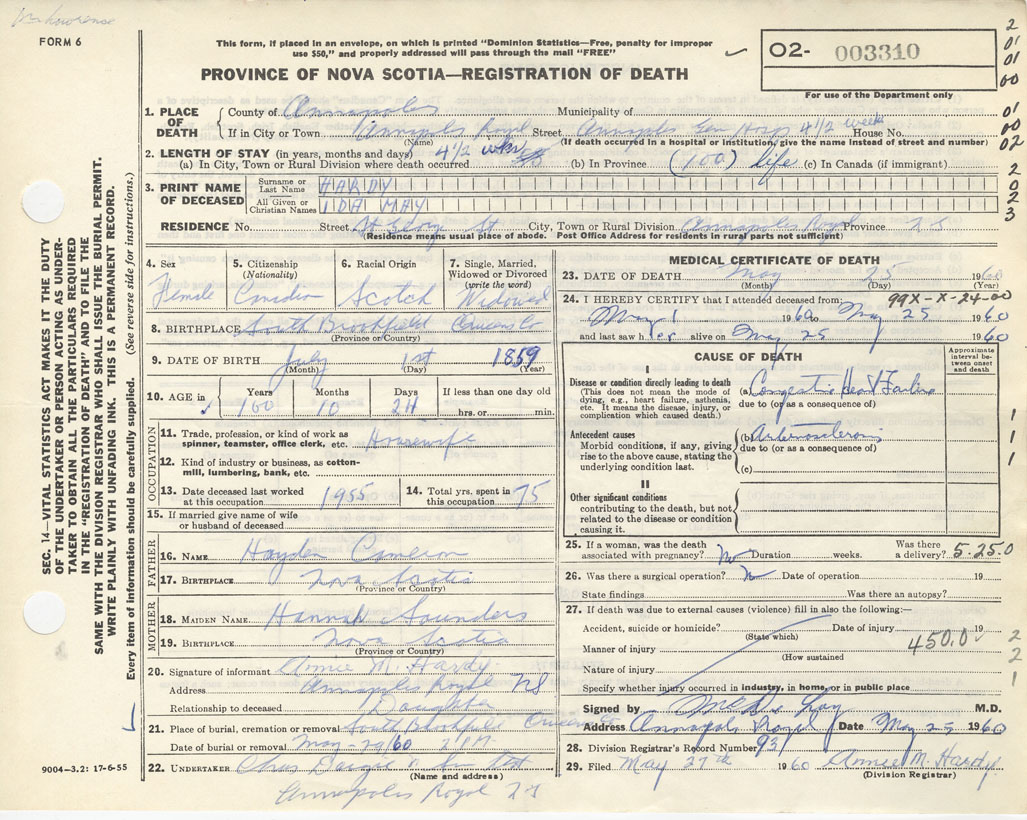 FORM 6
This form, if placed in an envelope, on which is printed "Dominion Statistics—Free, penalty for improper
use $50," and properly addressed will pass through the mail "FREE"
PROVINCE OF NOVA SCOTIA—REGISTRATION OF DEATH
O2- 003310
For use of the Department only
2
01
01
00
01
00
02
2
0
2
3
1. PLACE OF DEATH County of Annapolis Municipality of
If in City or Town Annapolis Royal Street Annapolis Gen Hosp 4 1/2 weeks House No.
(Name) (If death occurred in a hospital or institution, give the name instead of street and number)
2. LENGTH OF STAY (in years, months and days) 4 1/2 wks
(a) In City, Town or Rural Division where death occurred (b) In Province (100) life (c) In Canada (if immigrant)
3. PRINT NAME OF DECEASED
Surname or Last Name HARDY
All Given or Christian Names IDA MAY
RESIDENCE No. Street St George St City, Town or Rural Division Annapolis Royal Province NS
(Residence means usual place of abode. Post Office Address for residents in rural parts not sufficient)
4. Sex Female
5. Citizenship (Nationality) Canadian
6. Racial Origin Scotch
7. Single, Married, Widowed or Divorced (write the word) Widowed
8. BIRTHPLACE South Brookfield Queens Co
(Province or Country)
9. DATE OF BIRTH July 1st 1859
(Month) (Day) (Year)
10. AGE in Years 100 Months 10 Days 24 If less than one day old hrs. or min.
OCCUPATION
11. Trade, profession, or kind of work as spinner, teamster, office clerk, etc. Housewife
12. Kind of industry or business, as cotton-mill, lumbering, bank, etc.
13. Date deceased last worked at this occupation 1955
14. Total yrs. spent in this occupation 75
15. If married give name of wife or husband of deceased
FATHER
16. NAME Hayden Cameron
17. BIRTHPLACE Nova Scotia
(Province or Country)
MOTHER
18. MAIDEN NAME Hannah Saunders
19. BIRTHPLACE Nova Scotia
(Province or Country)
20. Signature of informant Annie M. Hardy
Address Annapolis Royal NS
Relationship to deceased Daughter
21. Place of burial, cremation or removal South Brookfield Queens Co
Date of burial or removal May-29/60 2 PM
22. UNDERTAKER Chas Dargie & Son
(Name and address)
Annapolis Royal NS
MEDICAL CERTIFICATE OF DEATH
23. DATE OF DEATH May 25 1960
(Month) (Day) (Year)
24. I HEREBY CERTIFY that I attended deceased from: 99X-X-24-00
May 1 1960 to May 25 1960
and last saw her alive on May 25 1960
CAUSE OF DEATH
Approximate interval between onset and death
I
Disease or condition directly leading to death
(This does not mean the mode of dying, e.g., heart failure, asthenia, etc. It means the disease, injury, or complication which caused death.)
(a) Congestive Heart Failure
due to (or as a consequence of)
Antecedent causes
Morbid conditions, if any, giving rise to the above cause, stating the underlying condition last.
(b) Arteriosclerosis
due to (or as a consequence of)
(c)
II
Other significant conditions contributing to the death, but not related to the disease or condition causing it.
1
1
1
25. If a woman, was the death associated with pregnancy? No Duration weeks. Was there a delivery? 5.25.0
26. Was there a surgical operation? No Date of operation 19
State findings Was there an autopsy?
27. If death was due to external causes (violence) fill in also the following:—
Accident, suicide or homicide? Date of injury 19
(State which)
Manner of injury 450.0
(How sustained)
Nature of injury
Specify whether injury occurred in industry, in home, or in public place
2
2
1
Signed by M.D.
Address Annapolis Royal Date May 25 1960
28. Division Registrar's Record Number 93
29. Filed May 27th 1960 Annie M. Hardy
(Division Registrar)
9004—3.2: 17-6-55
SEC. 14—VITAL STATISTICS ACT MAKES IT THE DUTY
OF THE UNDERTAKER OR PERSON ACTING AS UNDER-
TAKER TO OBTAIN ALL THE PARTICULARS REQUIRED
IN THE "REGISTRATION OF DEATH" AND TO FILE THE
SAME WITH THE DIVISION REGISTRAR WHO SHALL ISSUE THE BURIAL PERMIT.
WRITE PLAINLY WITH UNFADING INK. THIS IS A PERMANENT RECORD.
Every item of information should be carefully supplied. (See reverse side for instructions.)